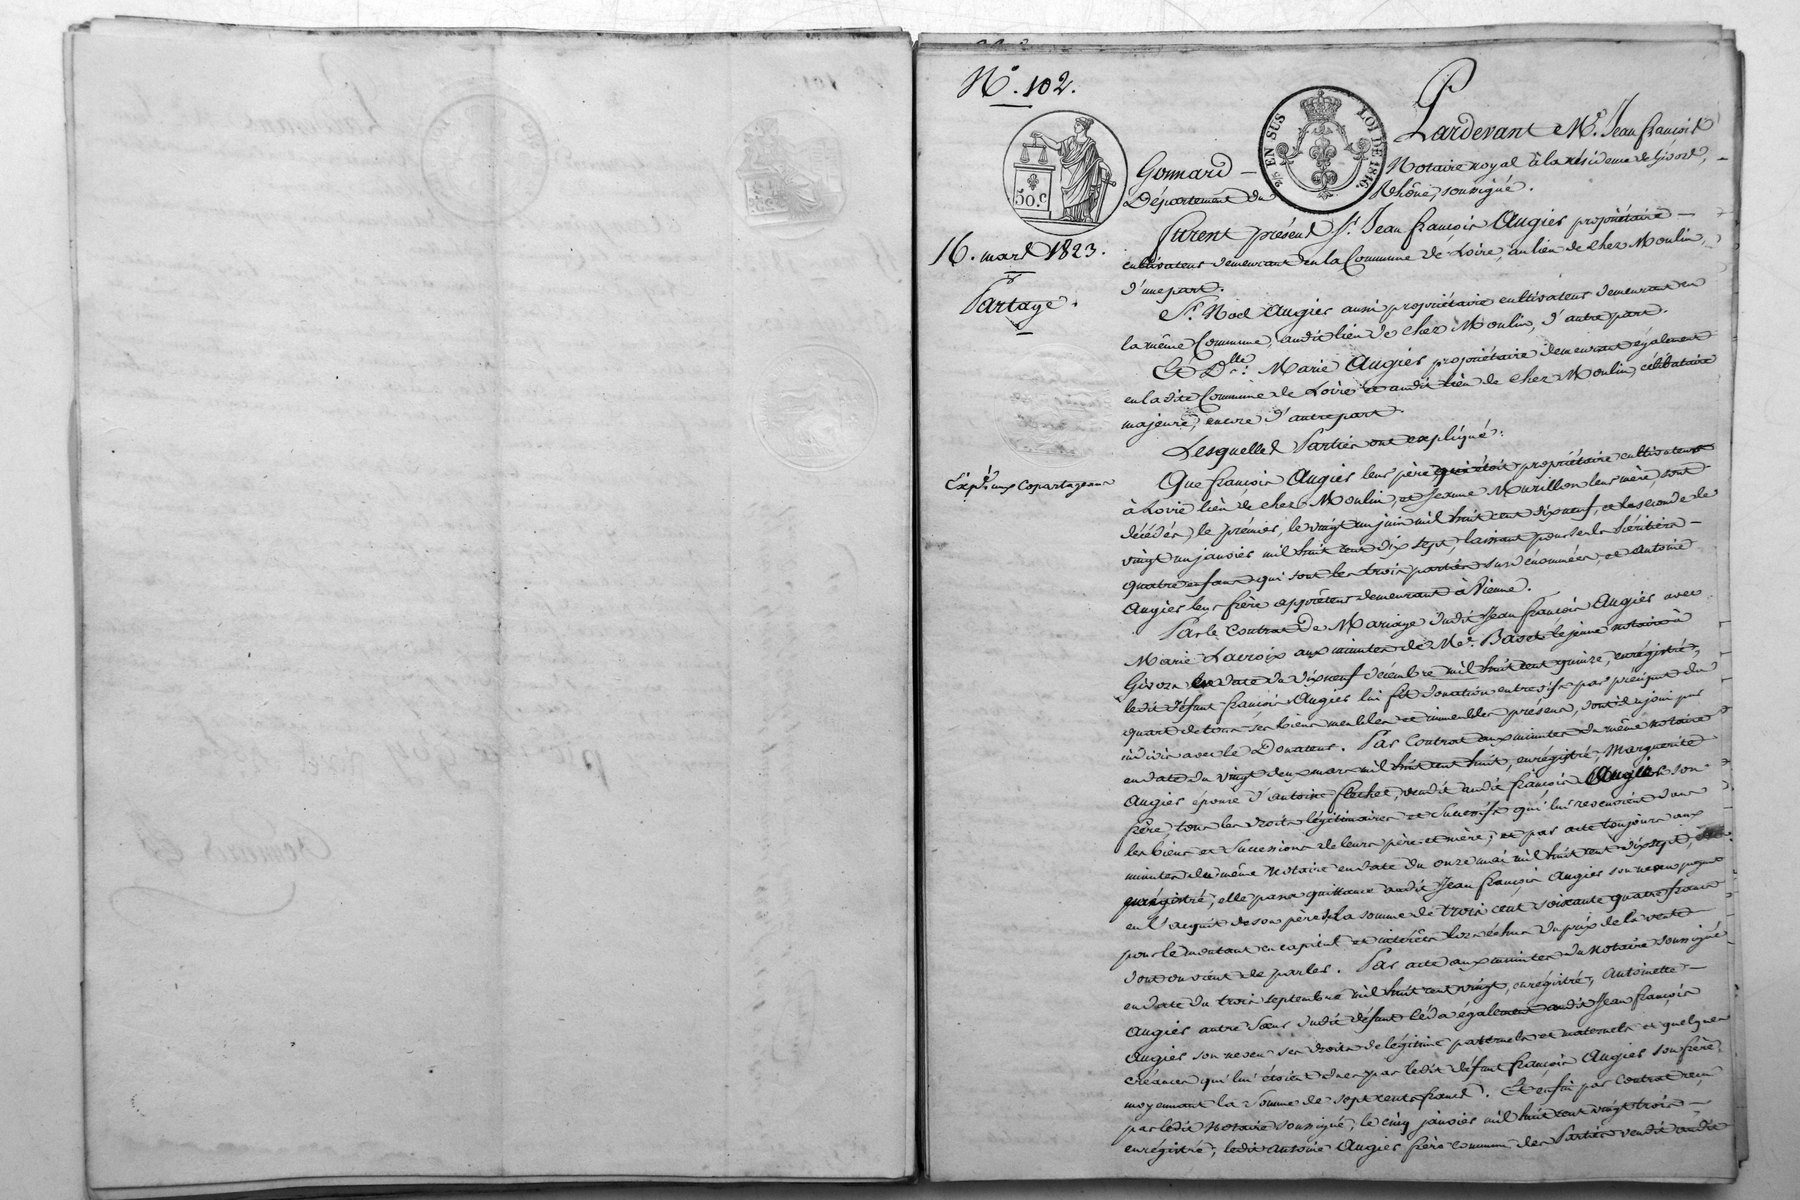 N.° 102.
50.c
2/5 EN SUS LOI DE 1816.
16. mars 1823.
Partage.
Expéd. aux copartageans
Pardevant Me. Jean françois
Gonnard — Notaire royal à la résidence de Givors,
Département du Rhône, soussigné.
furent présens Sr. Jean françois Augier propriétaire —
cultivateur demeurant en la Commune de Loire, au lieu de chez Moulin,
d'une part.
Sr. Noel Augier aussi propriétaire cultivateur demeurant en
la même Commune, audit lieu de chez Moulin, d'autre part.
Et Dlle. Marie Augier propriétaire demeurant également
en ladite Commune de Loire et audit lieu de chez Moulin, célibataire
majeure, encore d'autre part.
Lesquelles Parties ont expliqué:
Que françois Augier leur père qui étoit propriétaire cultivateur
à Loire lieu de chez Moulin, et Jeanne Murillon leur mère, sont
décédés, le premier, le vingt un juin mil huit cent dix neuf, et la seconde le
vingt un janvier mil huit cent dix sept, laissant pour seuls héritiers —
quatre enfans qui sont les trois parties susdénommées, et Antoine
Augier leur frère apprêteur demeurant à Vienne.
Par le Contrat de Mariage dudit Jean françois Augier avec
Marie Lacroix aux minutes de Me. Basset le jeune notaire à
Givors en date du dix neuf décembre mil huit cent quinze, enrégistré,
ledit défunt françois Augier lui fit donation entrevifs par préciput du
quart de tous ses biens meubles et immeubles présens, dont il a joui par
indivis avec le Donateur. Par Contrat aux minutes du même notaire
en date du vingt deux mars mil huit cent huit, enrégistré, Marguerite
Augier épouse d'antoine flechet, vendit audit françois Augier son
frère, tous les droits légitimaires et successifs qui lui revenoient dans
les biens et successions de leurs père et mère; et par acte toujours aux
minutes du même Notaire en date du onze mai mil huit cent dix sept,
enrégistré, elle passa quittance audit Jean françois Augier son neveu payant
en l'acquit de son père de la somme de trois cent soixante quatre francs
pour le montant en capital et intérêts lors échus du prix de la vente
dont on vient de parler. Par acte aux minutes du Notaire soussigné
en date du trois septembre mil huit cent vingt, enrégistré, Antoinette —
Augier autre sœur dudit défunt céda également audit Jean françois
Augier son neveu ses droits de légitime paternels et maternels et quelques
créances qui lui étoient dues par ledit défunt françois Augier son frère,
moyennant la somme de sept cents francs. Et enfin par Contrat reçu
par ledit Notaire soussigné, le cinq janvier mil huit cent vingt trois —
enrégistré, ledit antoine Augier frère commun des Parties vendit audit